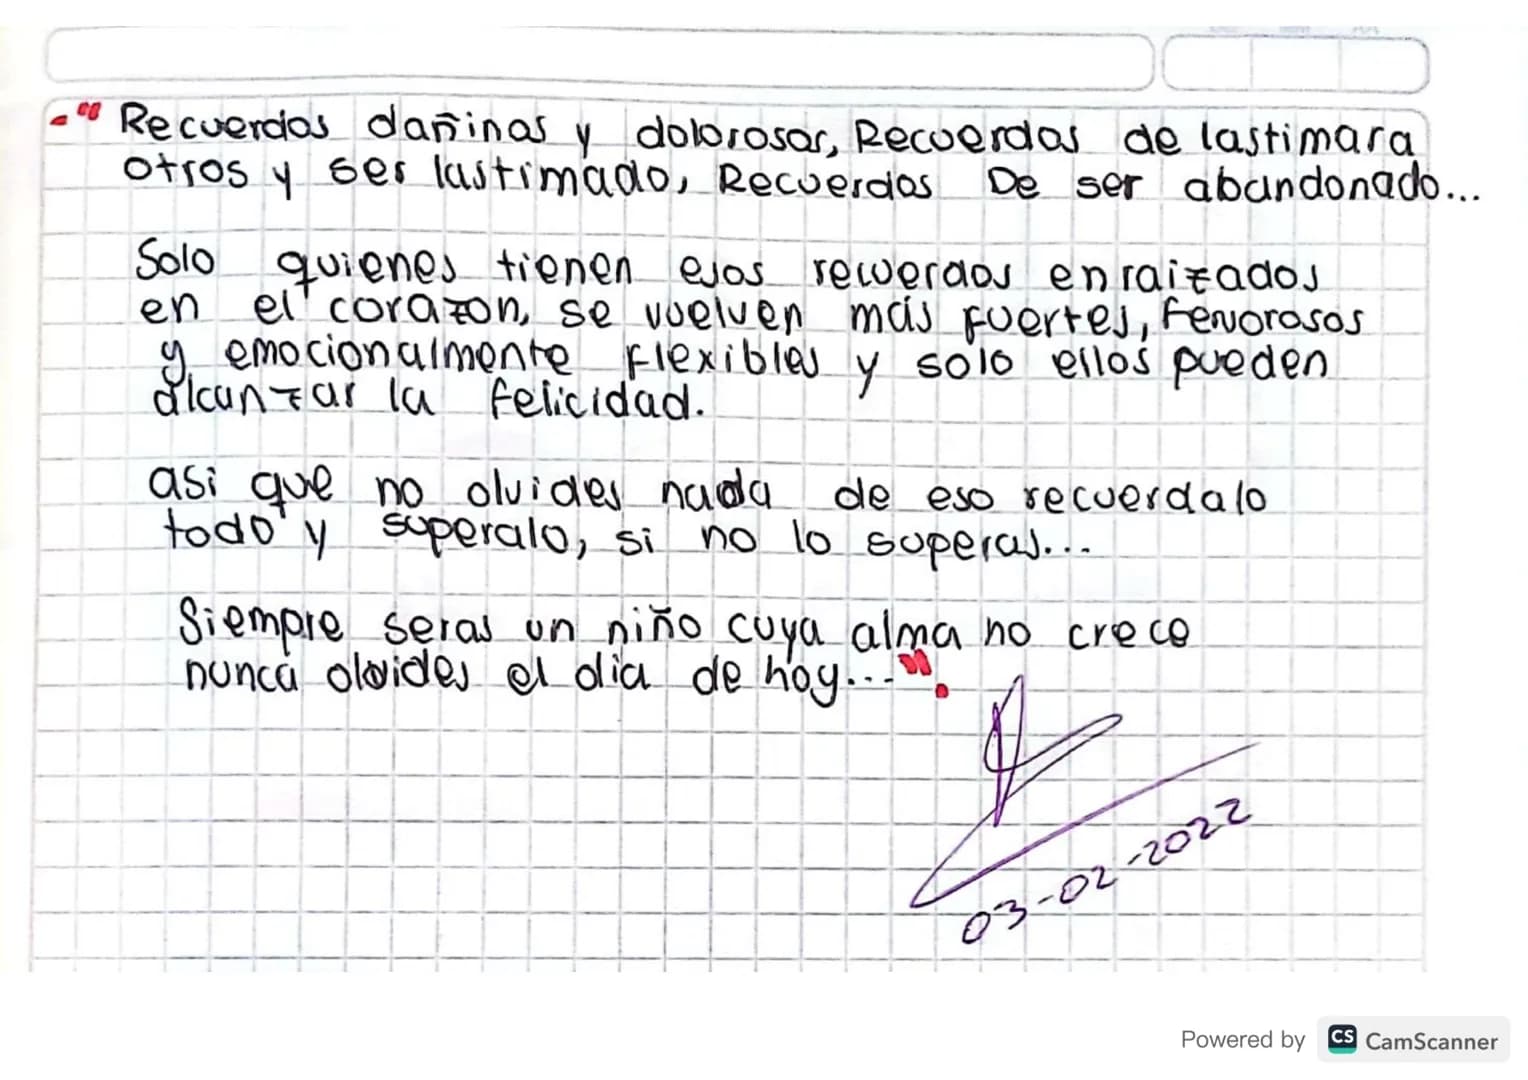 -" Recuerdos dañinos y dolorosos, Recuerdos de lastimara
otros y ser lastimado, Recuerdos De ser abandonado...
Solo quienes tienen esos recuerdos enraizados
en el corazon, se vuelven más fuertes, fervorosos
y emocionalmente flexibles y solo ellos pueden
alcanzar la felicidad.
asi que no olvides nada de eso recuerdalo
todo y superalo, si no lo superas...
Siempre seras un niño cuya alma no crece
nunca olvides el dia de hoy...".
03-02-2022
Powered by CS CamScanner